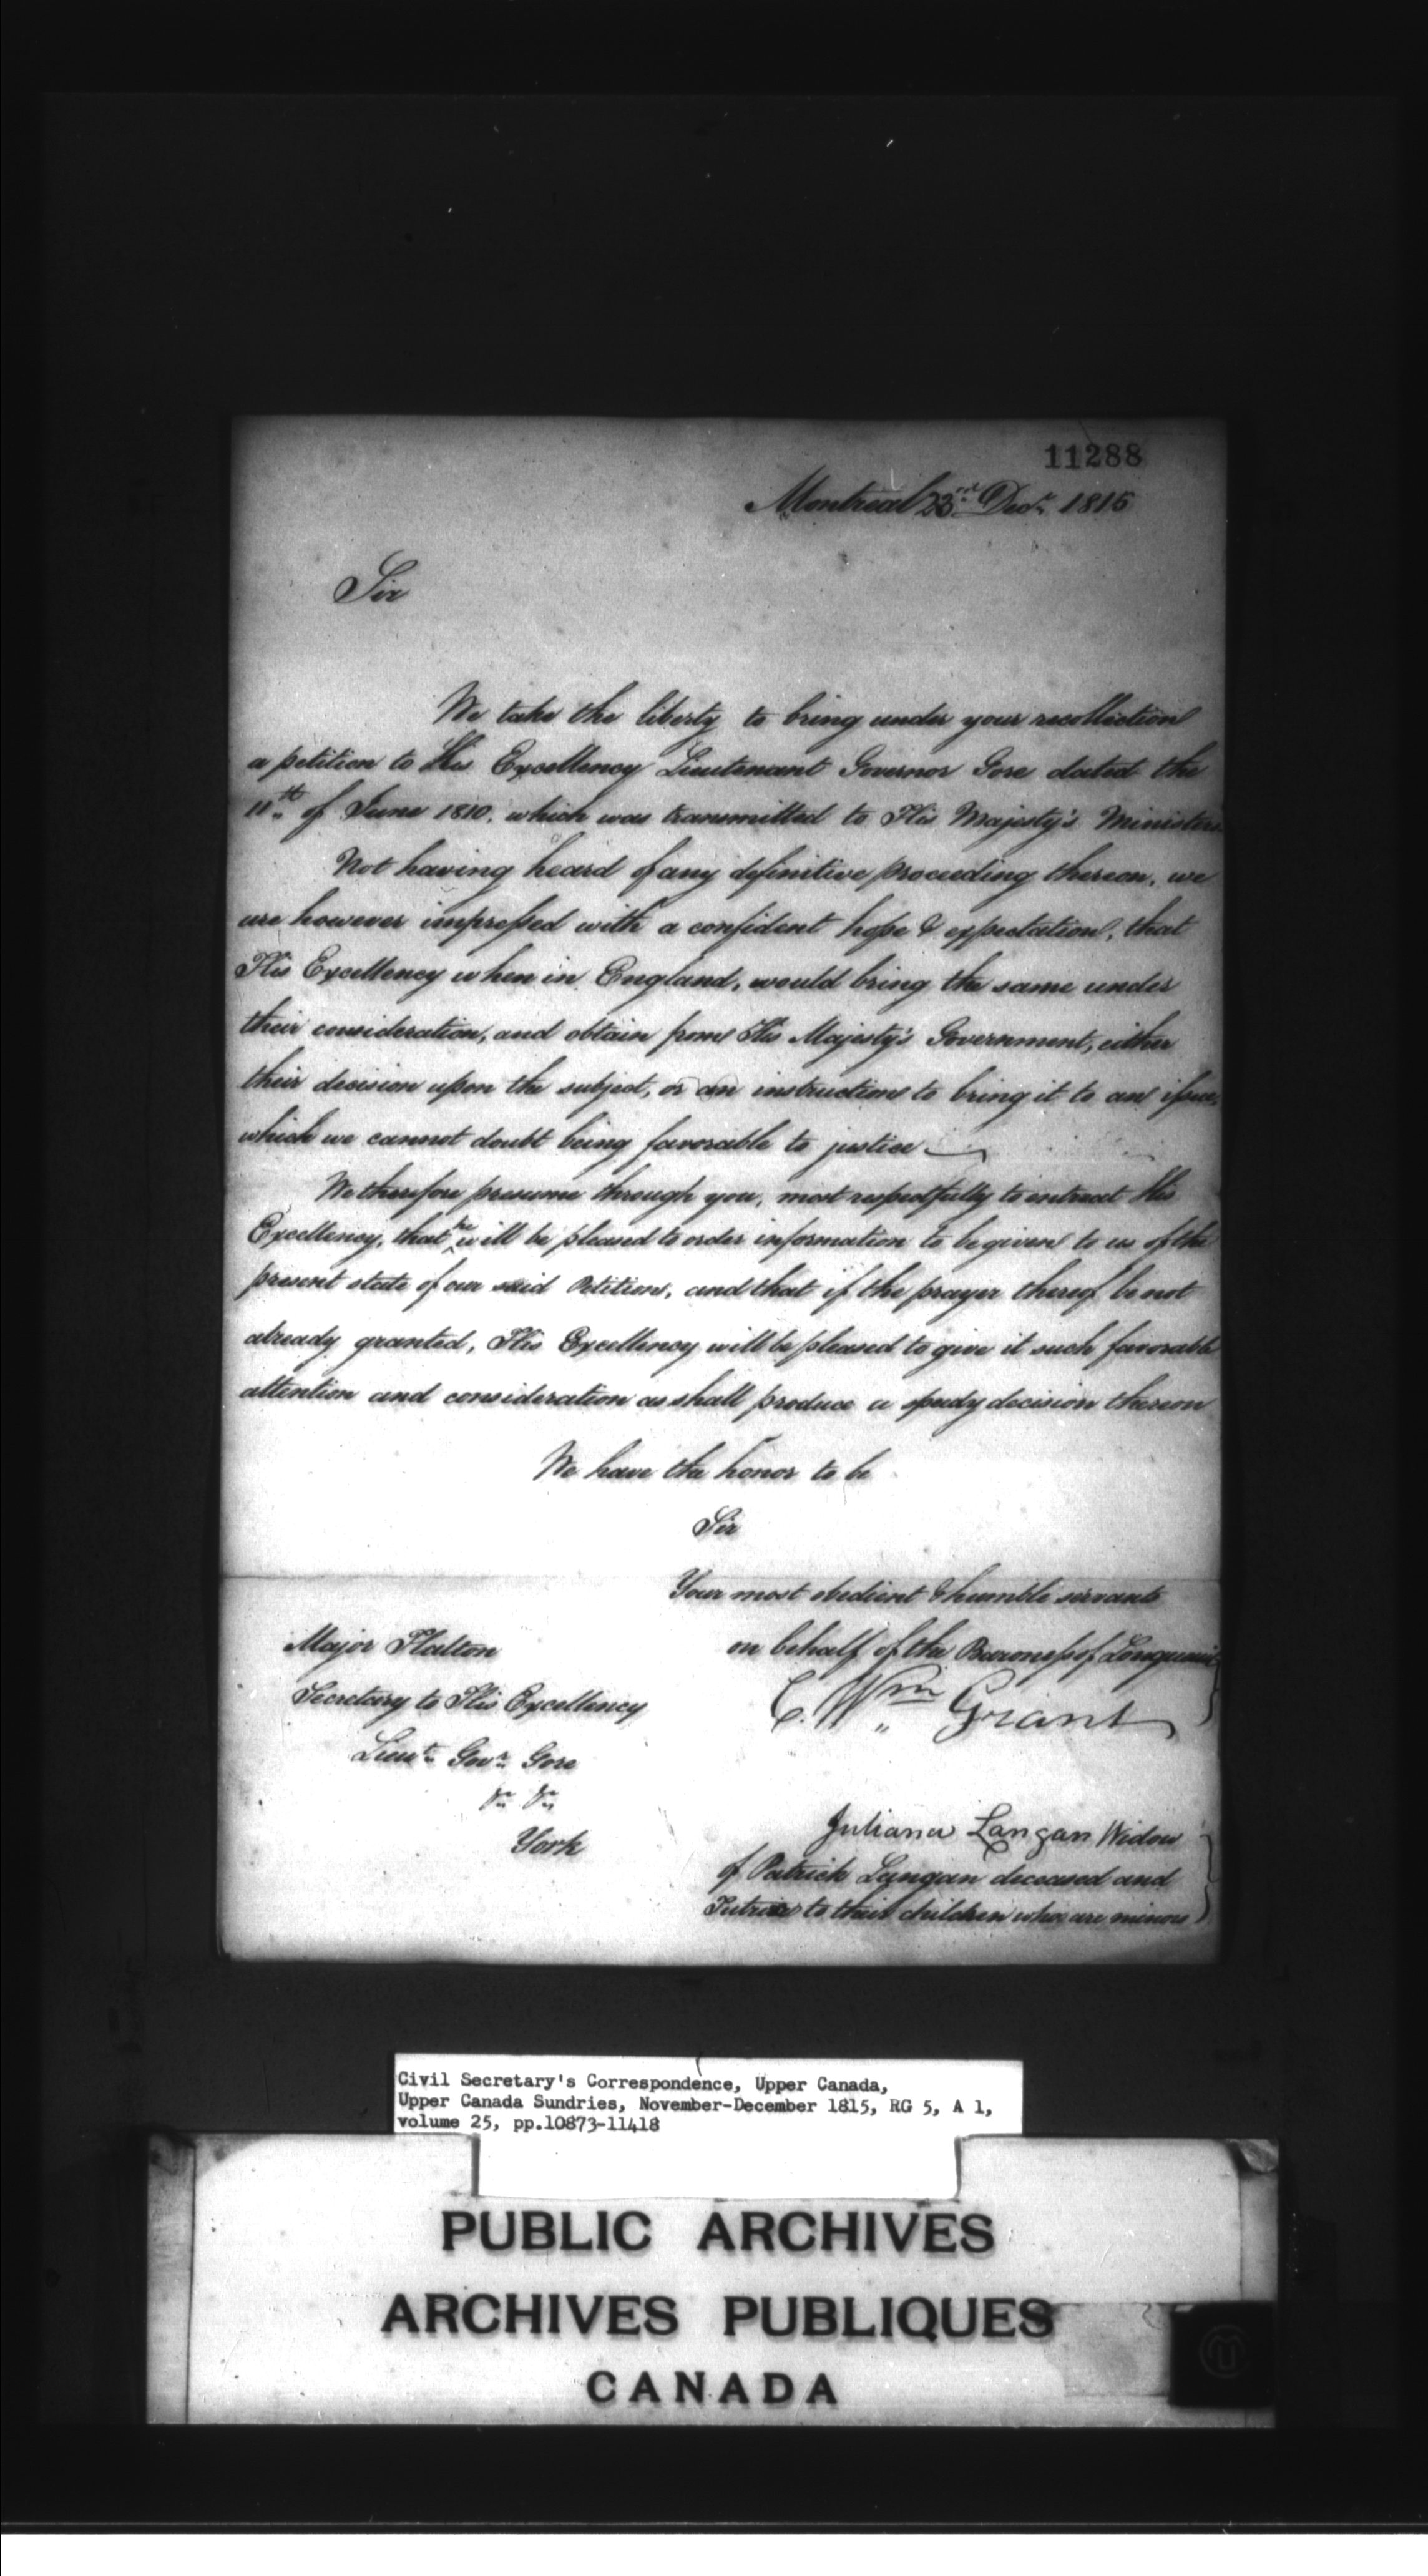 11288
Montreal 23rd Decr. 1815
Sir
We take the liberty to bring under your recollection
a petition to His Excellency Lieutenant Governor Gore dated the
11th of June 1810, which was transmitted to His Majesty's Ministers.
Not having heard of any definitive proceeding thereon, we
are however impressed with a confident hope & expectation, that
His Excellency when in England, would bring the same under
their consideration, and obtain from His Majesty's Government, either
their decision upon the subject, or an instruction to bring it to an issue,
which we cannot doubt being favorable to justice
We therefore presume through you, most respectfully to entreat His
Excellency, that he will be pleased to order information to be given to us of the
present state of our said Petition, and that if the prayer thereof be not
already granted, His Excellency will be pleased to give it such favorable
attention and consideration as shall produce a speedy decision thereon
We have the honor to be
Sir
Your most obedient & humble servants
Major Halton
on behalf of the Baroness of Longueuil
Secretary to His Excellency
C. Wm Grant
Lieut. Govr. Gore
&c &c
York
Juliana Langan Widow
of Patrick Langan deceased and
Tutrix to their children who are minors
Civil Secretary's Correspondence, Upper Canada,
Upper Canada Sundries, November-December 1815, RG 5, A 1,
volume 25, pp.10873-11418
PUBLIC ARCHIVES
ARCHIVES PUBLIQUES
CANADA